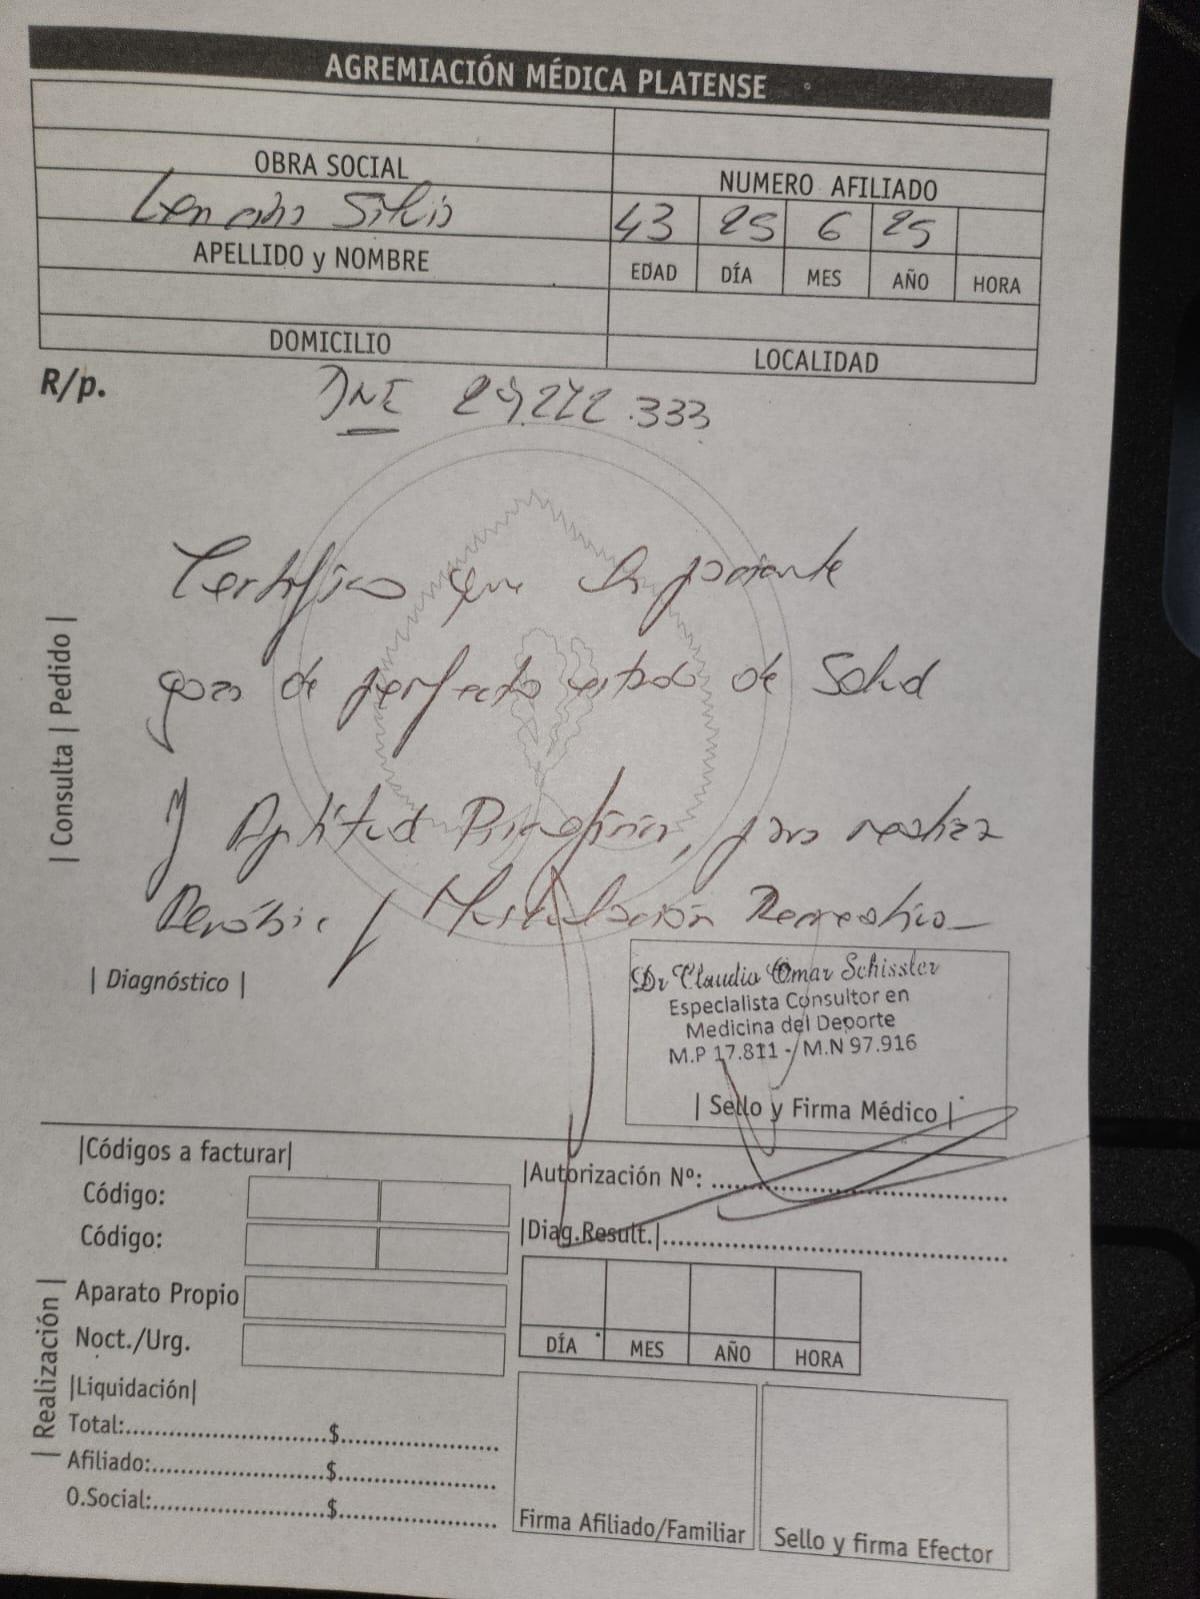 AGREMIACIÓN MÉDICA PLATENSE
OBRA SOCIAL
NUMERO AFILIADO
Silvia
43 25 6 25
APELLIDO y NOMBRE
EDAD DÍA MES AÑO HORA
DOMICILIO
LOCALIDAD
R/p.
DNI 29.272.333
| Consulta | Pedido |
Certifico que la paciente
goza de perfecto estado de Salud
y Aptitud Psicofísica, para realizar
Aeróbic / Musculación Recreativa
| Diagnóstico |
Dr Claudio Omar Schissler
Especialista Consultor en
Medicina del Deporte
M.P 17.811 - M.N 97.916
| Sello y Firma Médico |
|Códigos a facturar|
Código:
Código:
Aparato Propio
Noct./Urg.
| Realización |
|Liquidación|
Total:..............................$........................
Afiliado:..........................$........................
O.Social:..........................$........................
|Autorización Nº: ..............................................
|Diag.Result.|.....................................................
DÍA MES AÑO HORA
Firma Afiliado/Familiar
Sello y firma Efector